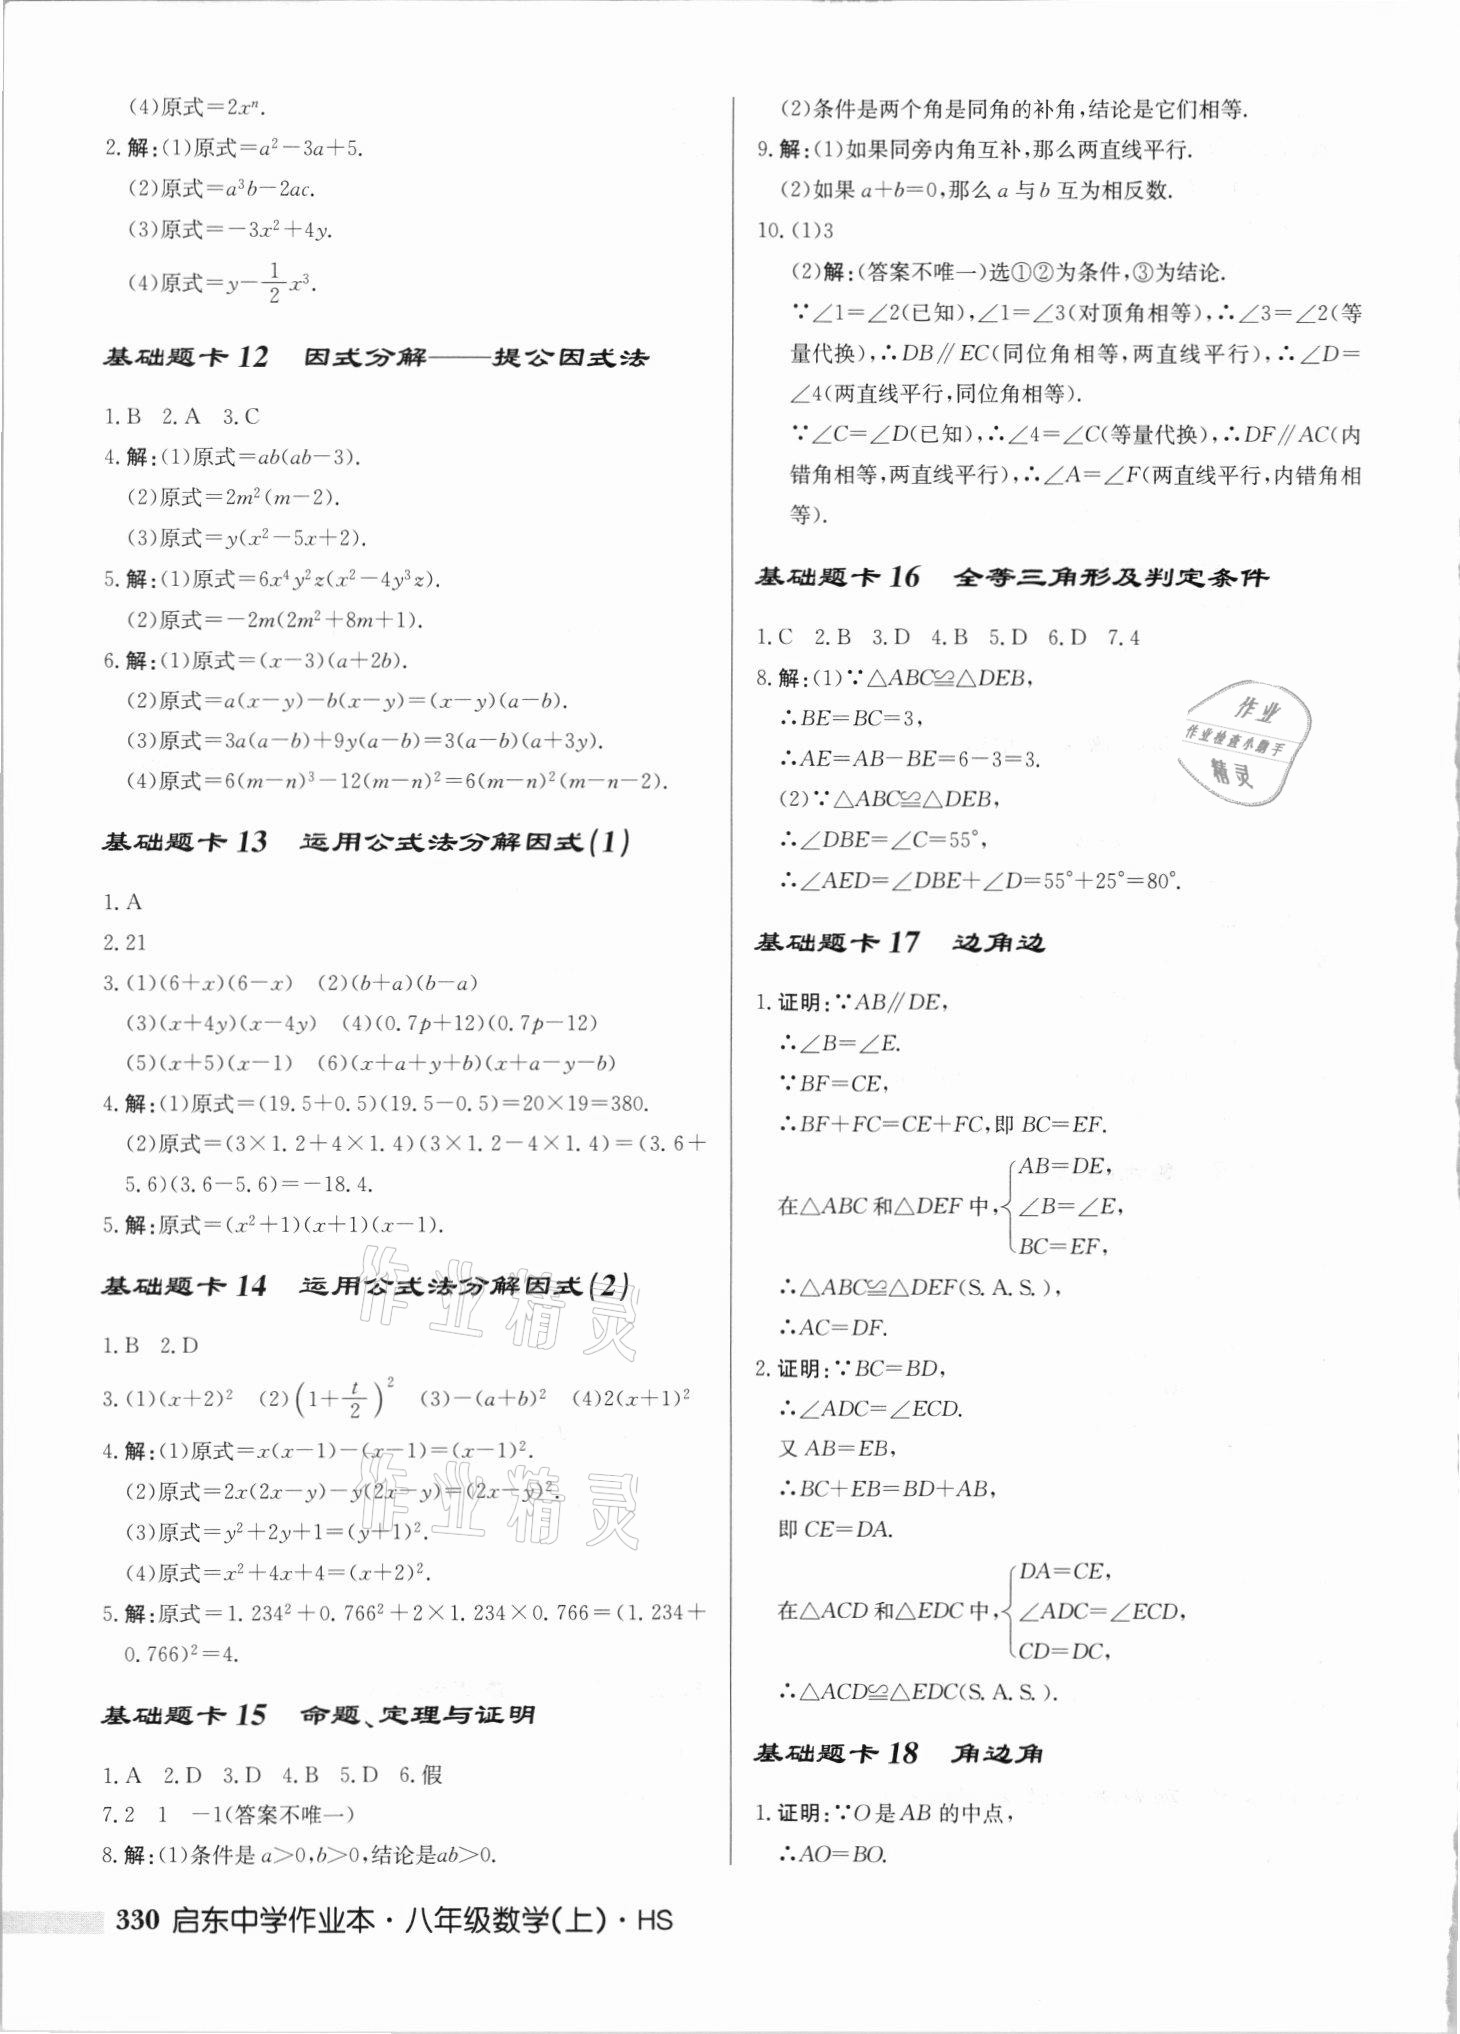 (4)原式=2xⁿ.
2. 解:(1)原式=a²-3a+5.
(2)原式=a³b-2ac.
(3)原式=-3x²+4y.
(4)原式=y-1/2x³.
基础题卡 12 因式分解——提公因式法
1. B 2. A 3. C
4. 解:(1)原式=ab(ab-3).
(2)原式=2m²(m-2).
(3)原式=y(x²-5x+2).
5. 解:(1)原式=6x⁴y²z(x²-4y³z).
(2)原式=-2m(2m²+8m+1).
6. 解:(1)原式=(x-3)(a+2b).
(2)原式=a(x-y)-b(x-y)=(x-y)(a-b).
(3)原式=3a(a-b)+9y(a-b)=3(a-b)(a+3y).
(4)原式=6(m-n)³-12(m-n)²=6(m-n)²(m-n-2).
基础题卡 13 运用公式法分解因式(1)
1. A
2. 21
3. (1)(6+x)(6-x) (2)(b+a)(b-a)
(3)(x+4y)(x-4y) (4)(0.7p+12)(0.7p-12)
(5)(x+5)(x-1) (6)(x+a+y+b)(x+a-y-b)
4. 解:(1)原式=(19.5+0.5)(19.5-0.5)=20×19=380.
(2)原式=(3×1.2+4×1.4)(3×1.2-4×1.4)=(3.6+
5.6)(3.6-5.6)=-18.4.
5. 解:原式=(x²+1)(x+1)(x-1).
基础题卡 14 运用公式法分解因式(2)
1. B 2. D
3. (1)(x+2)² (2)(1+t/2)² (3)-(a+b)² (4)2(x+1)²
4. 解:(1)原式=x(x-1)-(x-1)=(x-1)².
(2)原式=2x(2x-y)-y(2x-y)=(2x-y)².
(3)原式=y²+2y+1=(y+1)².
(4)原式=x²+4x+4=(x+2)².
5. 解:原式=1.234²+0.766²+2×1.234×0.766=(1.234+
0.766)²=4.
基础题卡 15 命题、定理与证明
1. A 2. D 3. D 4. B 5. D 6. 假
7. 2 1 -1(答案不唯一)
8. 解:(1)条件是a>0,b>0,结论是ab>0.
(2)条件是两个角是同角的补角,结论是它们相等.
9. 解:(1)如果同旁内角互补,那么两直线平行.
(2)如果a+b=0,那么a与b互为相反数.
10. (1)3
(2)解:(答案不唯一)选①②为条件,③为结论.
∵∠1=∠2(已知),∠1=∠3(对顶角相等),∴∠3=∠2(等
量代换),∴DB∥EC(同位角相等,两直线平行),∴∠D=
∠4(两直线平行,同位角相等).
∵∠C=∠D(已知),∴∠4=∠C(等量代换),∴DF∥AC(内
错角相等,两直线平行),∴∠A=∠F(两直线平行,内错角相
等).
基础题卡 16 全等三角形及判定条件
1. C 2. B 3. D 4. B 5. D 6. D 7. 4
8. 解:(1)∵△ABC≌△DEB,
∴BE=BC=3,
∴AE=AB-BE=6-3=3.
(2)∵△ABC≌△DEB,
∴∠DBE=∠C=55°,
∴∠AED=∠DBE+∠D=55°+25°=80°.
作业
作业检查小助手
精灵
基础题卡 17 边角边
1. 证明:∵AB∥DE,
∴∠B=∠E.
∵BF=CE,
∴BF+FC=CE+FC,即BC=EF.
AB=DE,
在△ABC和△DEF中,{∠B=∠E,
BC=EF,
∴△ABC≌△DEF(S.A.S.),
∴AC=DF.
2. 证明:∵BC=BD,
∴∠ADC=∠ECD.
又AB=EB,
∴BC+EB=BD+AB,
即CE=DA.
DA=CE,
在△ACD和△EDC中,{∠ADC=∠ECD,
CD=DC,
∴△ACD≌△EDC(S.A.S.).
基础题卡 18 角边角
1. 证明:∵O是AB的中点,
∴AO=BO.
作业精灵
作业精灵
330 启东中学作业本·八年级数学(上)·HS